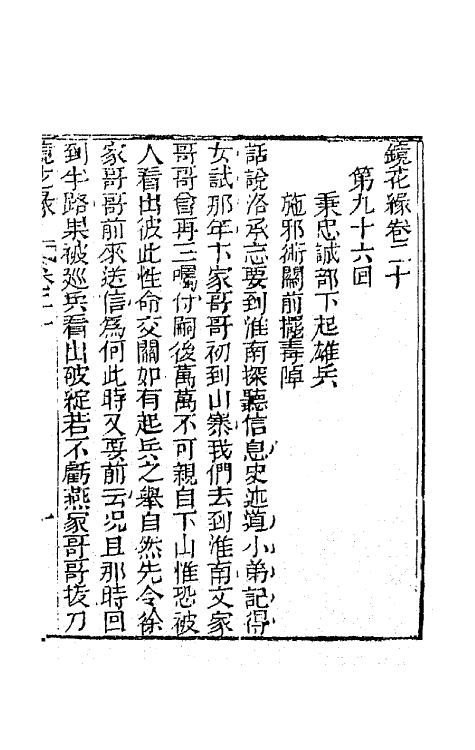 鏡花緣卷二十
第九十六回
秉忠誠部下起雄兵
施邪術關前擺毒陣
話說洛承志要到淮南探聽信息史述道小弟記得
女試那年卞家哥哥初到山寨我們去到淮南文家
哥哥曾再三囑付嗣後萬萬不可親自下山惟恐被
人看出彼此性命交關如有起兵之舉自然先令徐
家哥哥前來送信為何此時又要前去况且那時回
到半路果被廵兵看出破綻若不虧燕家哥哥拔刀
鏡花緣